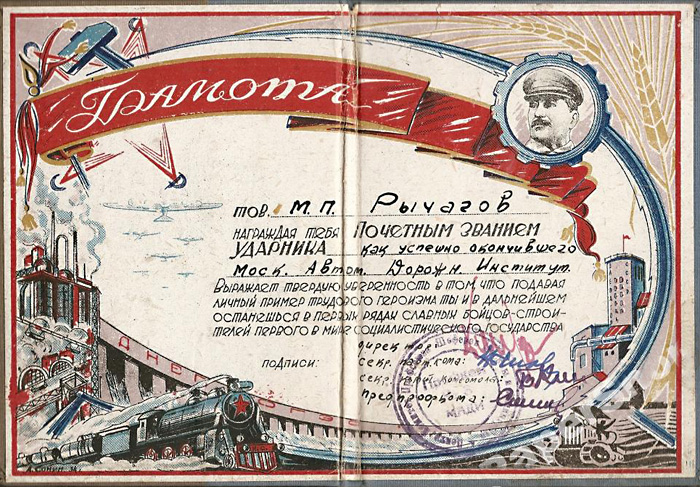 Грамота
тов. М.П. Рычагов
награждая тебя почетным званием
ударника как успешно окончившего
Моск. Автом. Дорожн. Институт.
Выражает твердую уверенность в том что подавая
личный пример трудового героизма ты и в дальнейшем
останешься в первых рядах славных бойцов-строи-
телей первого в мире социалистического государства
директор
подписи:
секр. парткома:
секр. комсомола:
Предпрофкома:
МАДИ
ДНЕПРОГЭС